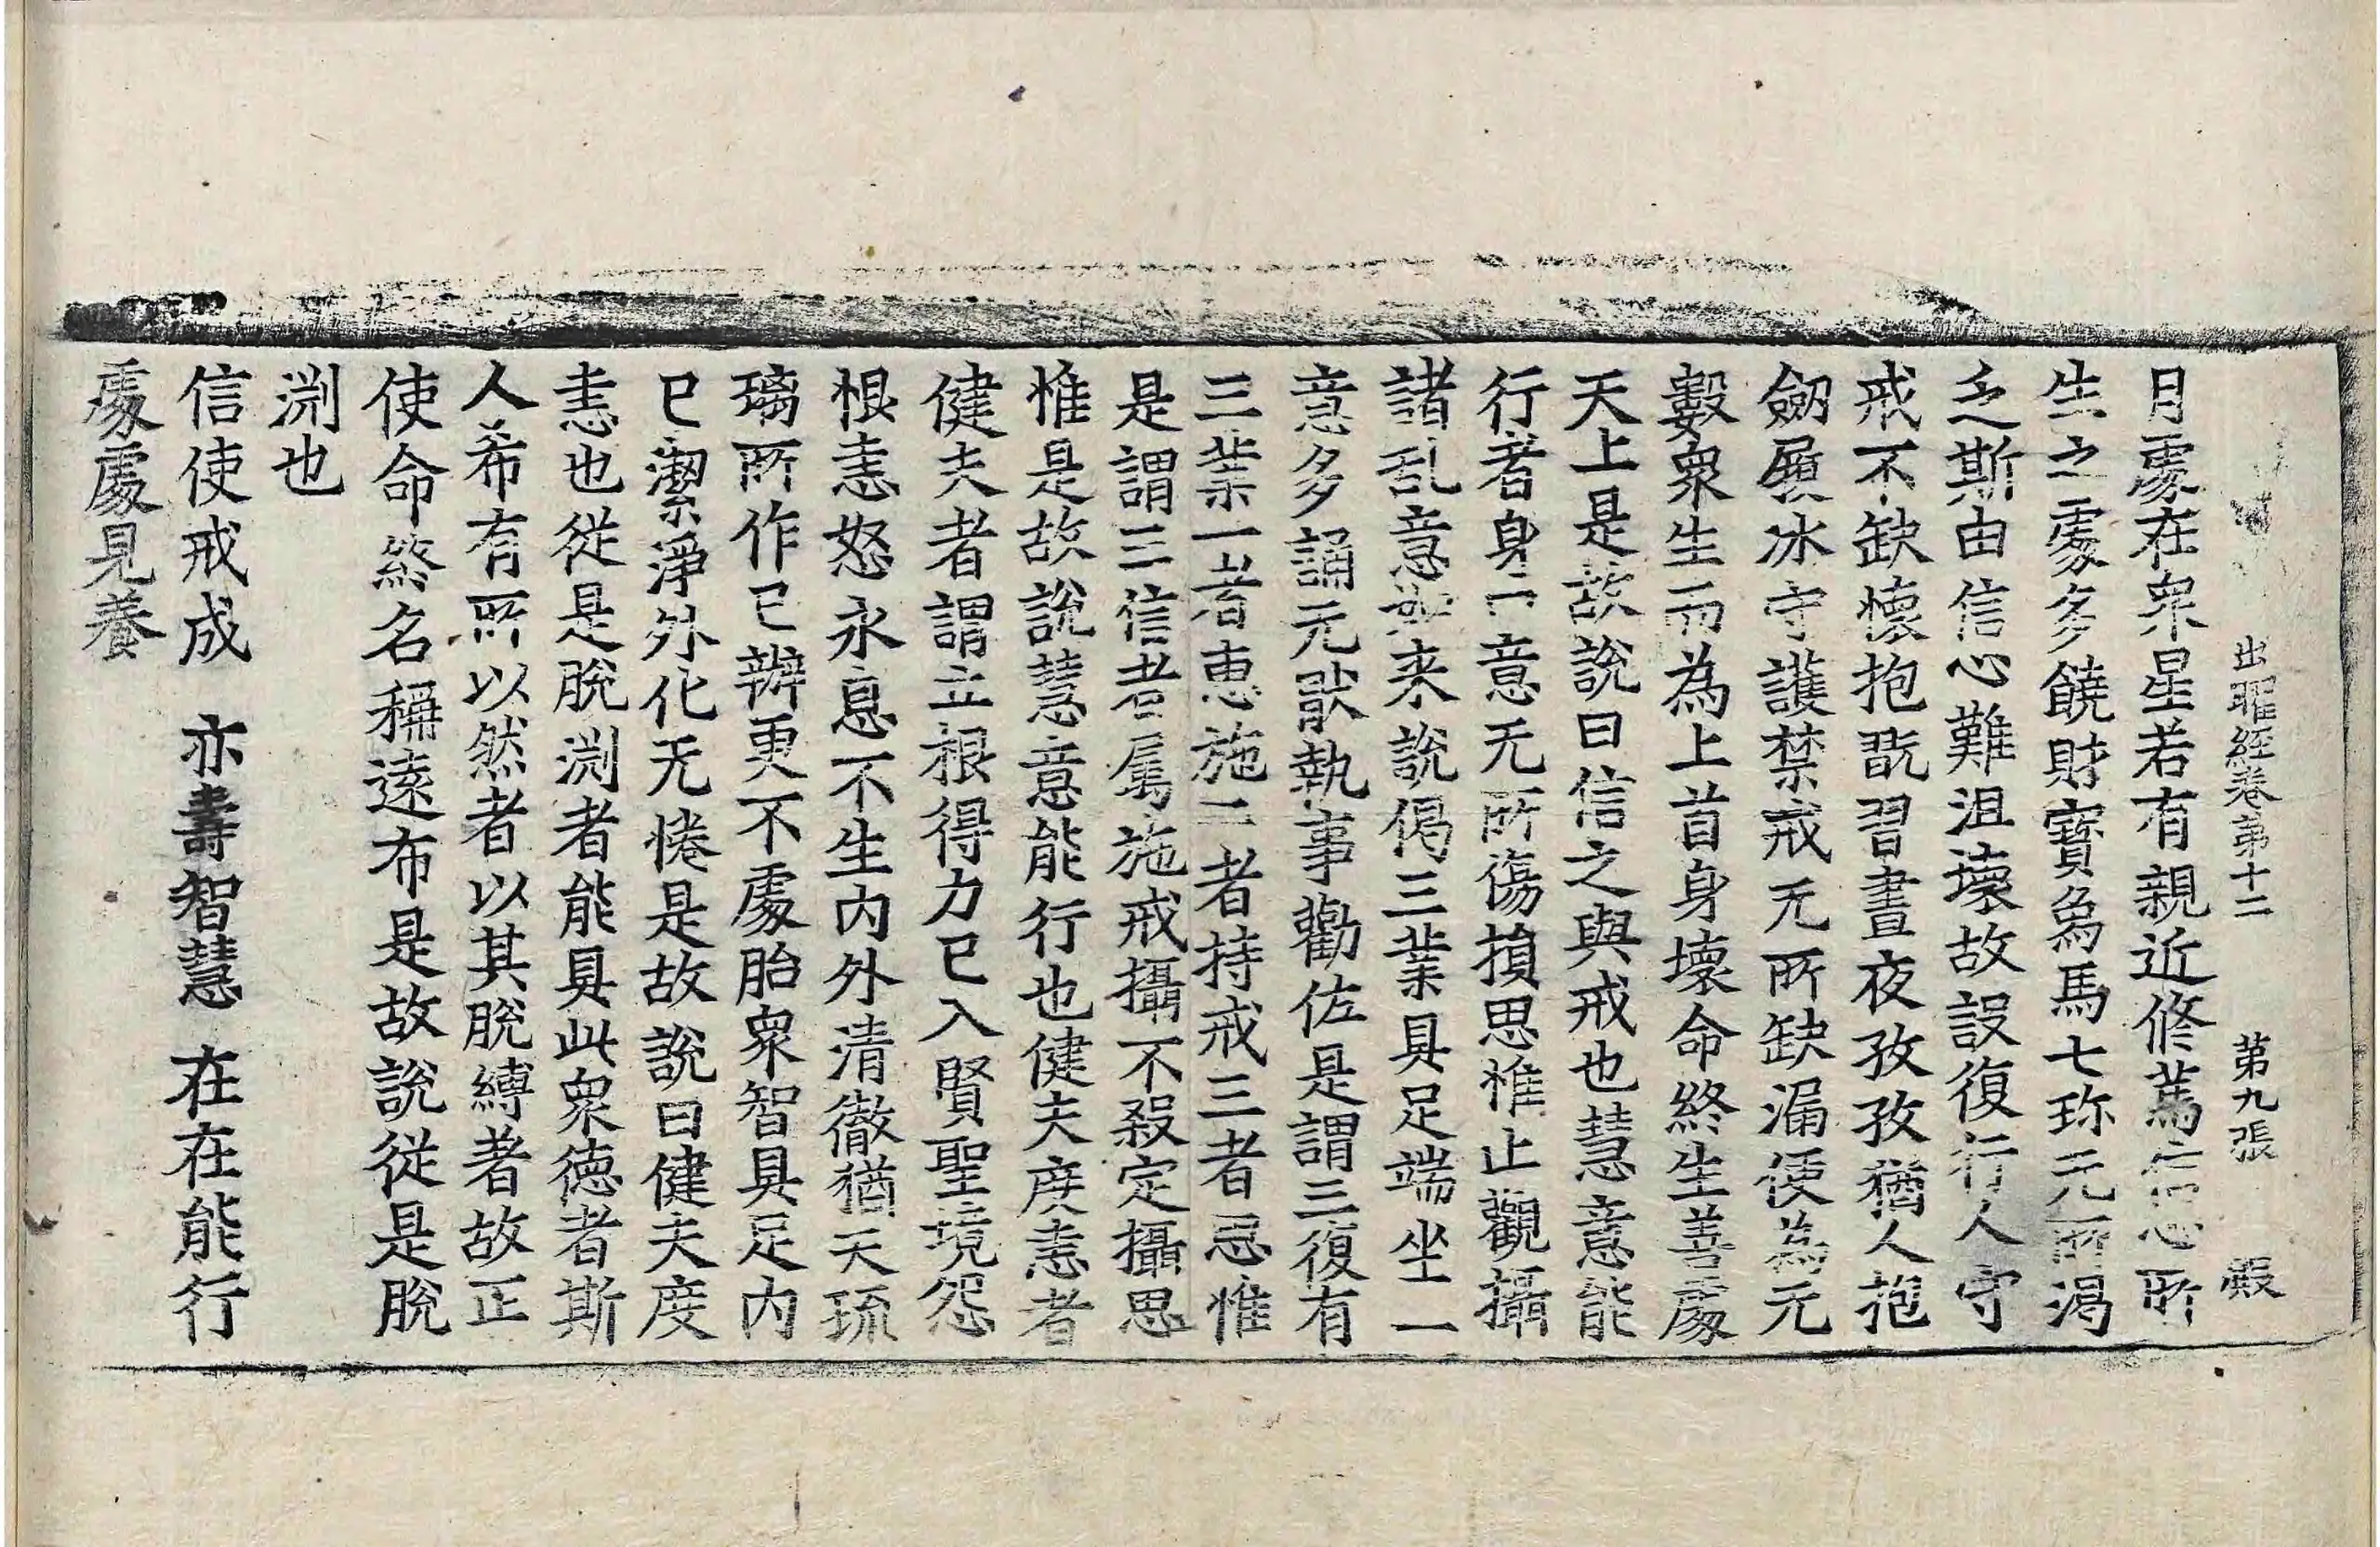 出曜經卷第十二 第九張 殷
月處在衆星若有親近修篤信心所
生之處多饒財寶爲馬七珎无所渴
乏斯由信心難沮壞故設復行人守
戒不缺懷抱翫習晝夜孜孜猶人抱
劒履冰守護禁戒无所缺漏便為无
數衆生而為上首身壞命終生善處
天上是故說曰信之與戒也慧意能
行者身口意无所傷損思惟止觀攝
諸乱意如来說偈三業具足端坐一
意多誦无猒執事勸佐是謂三復有
三業一者惠施二者持戒三者忌惟
是謂三信者属施戒攝不殺定攝思
惟是故說慧意能行也健夫度恚者
健夫者謂立根得力已入賢聖境怨
根恚怒永息不生内外清徹猶天琉
璃所作已辦更不處胎衆智具足内
已潔淨外化无惓是故說曰健夫度
恚也從是脫渕者能具此衆德者斯
人希有所以然者以其脫縛者故正
使命終名稱遠布是故說從是脫
渕也
信使戒成 亦壽智慧 在在能行
處處見養